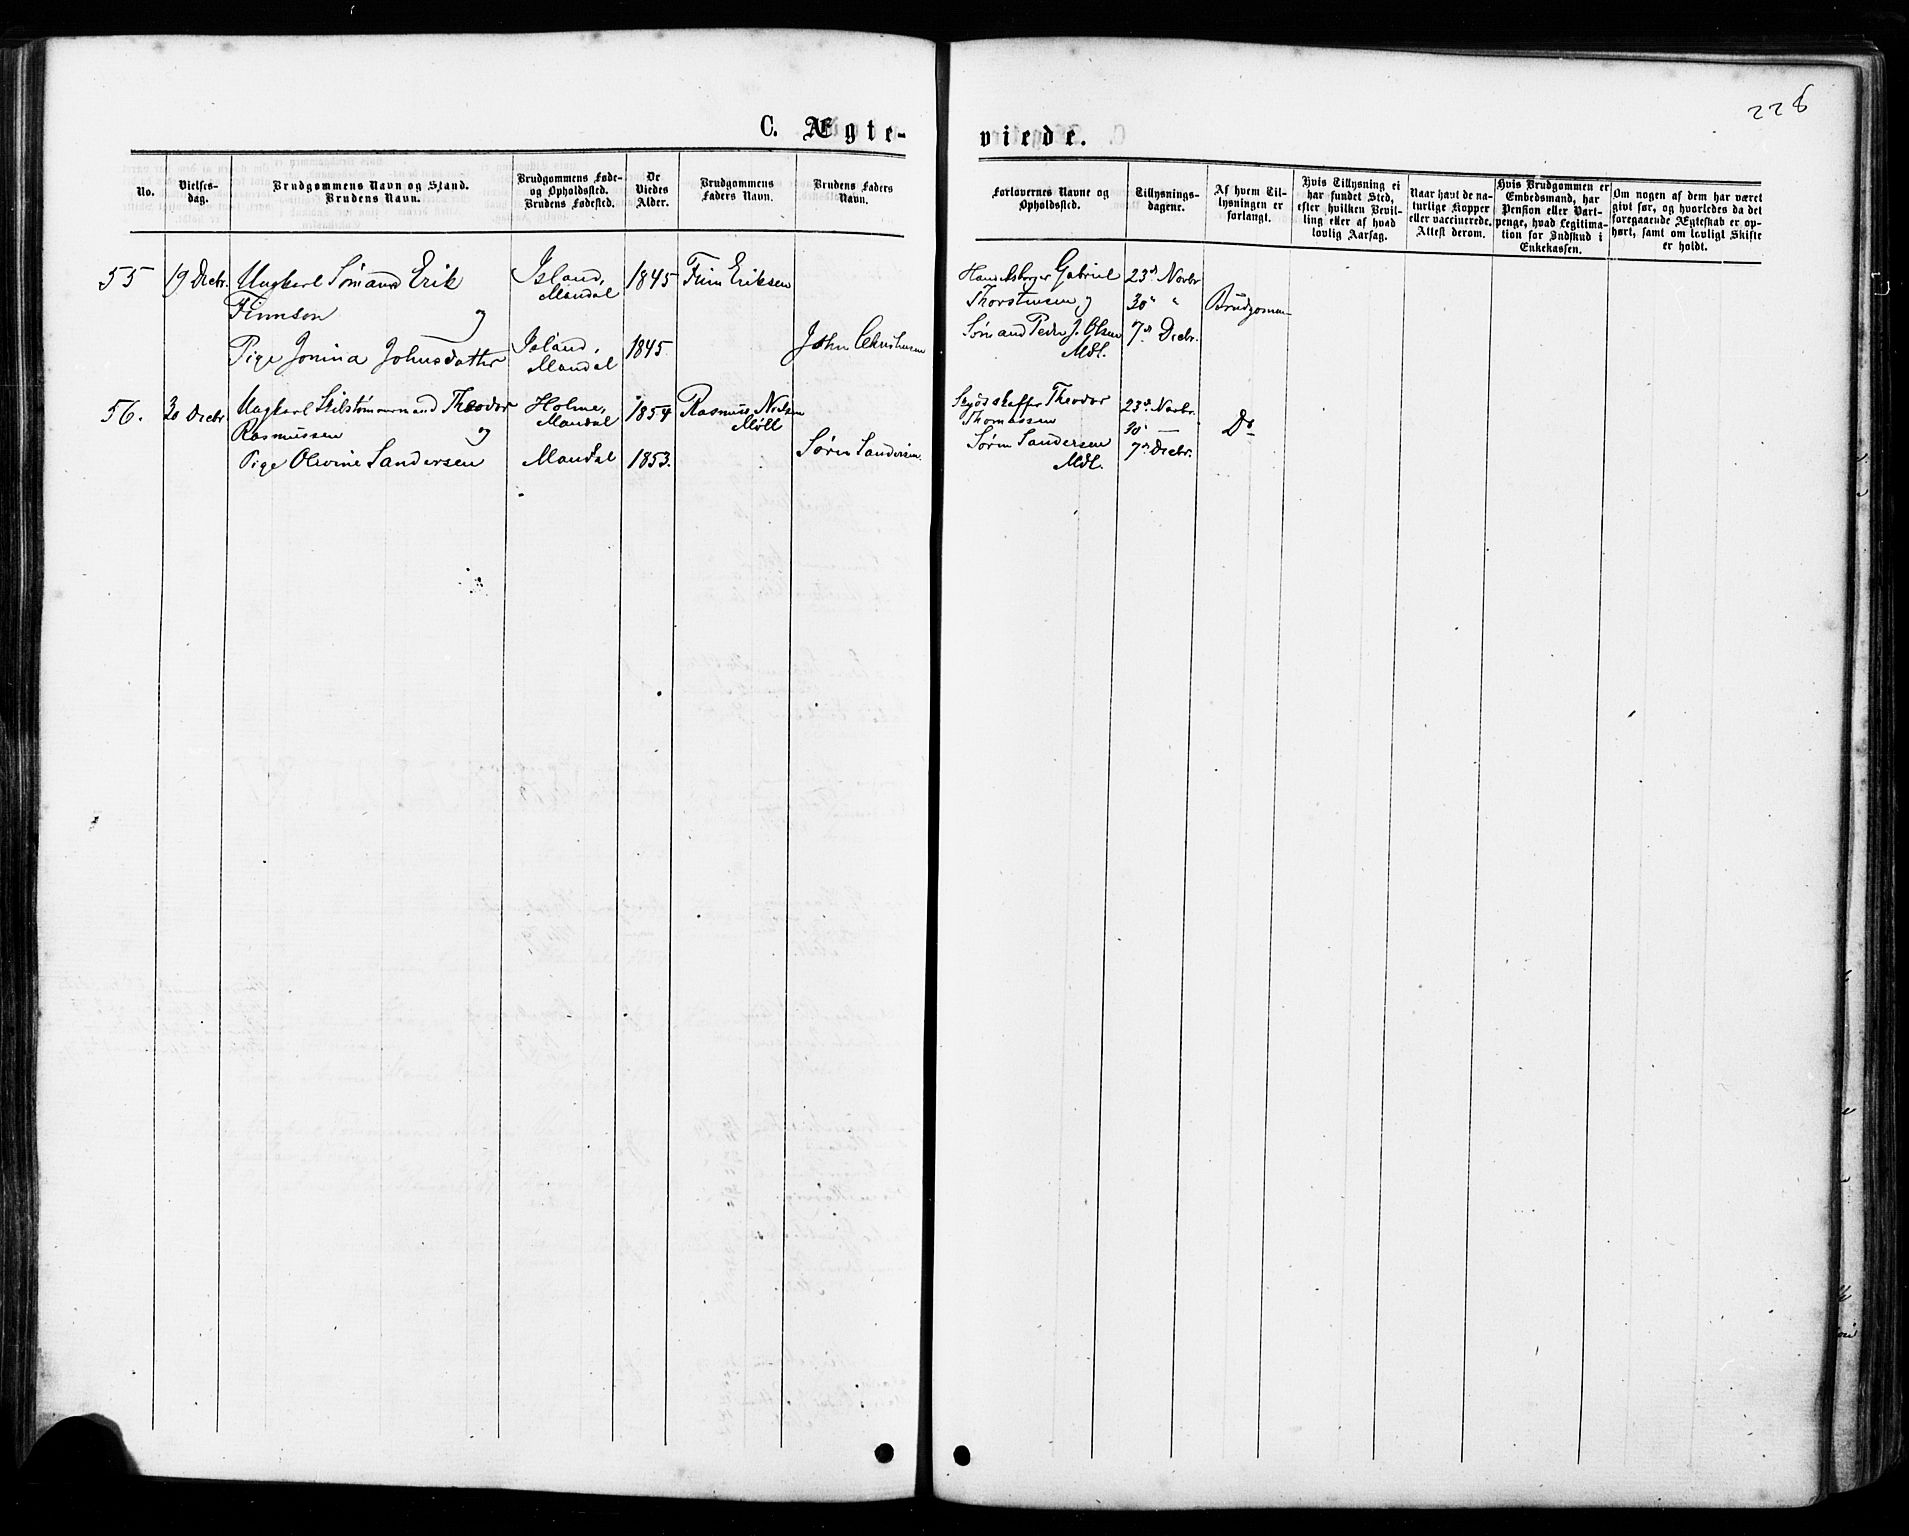 228
C. Ægte-
viede.
No.
Vielses-
dag.
Brudgommens Navn og Stand.
Brudens Navn.
Brudgommens Føde-
og Opholdssted.
Brudens Fødested.
De
Viedes
Alder.
Brudgommens
Faders Navn.
Brudens Faders
Navn.
Forlovernes Navne og
Opholdssted.
Tillysnings-
dagene.
Af hvem Til-
lysningen er
forlangt.
Hvis Tillysning ei
har fundet Sted,
efter hvilken Bevil-
ling eller af hvad
lovlig Aarsag.
Naar havt de na-
turlige Kopper
eller vaccinerede.
Attest derom.
Hvis Brudgommen er
Embedsmand, har
Pension eller Vart-
penge, hvad Legitima-
tion for Indskud i
Enkekassen.
Om nogen af dem har været
givt før, og hvorledes da det
foregaaende Ægteskab er op-
hørt, samt om lovligt Skifte
er holdt.
55
19 Decbr.
Ungkarl Sømand Erik
Finnson og
Pige Jonina Johnsdatter
Island,
Mandal
Island,
Mandal
1845
1845
Finn Eriksen
John Christensen
Handelsborger Gabriel
Thorstensen og
Sømand Peder J. Olsen
Mdl.
23de Novbr
30" "
7de Decbr.
Brudgommen
56.
30 Decbr
Ungkarl Skibstømmermand Theodor
Rasmussen og
Pige Olevine Sandersen
Holme,
Mandal
Mandal
1854
1853.
Rasmus Nielsen
Møll
Søren Sandersen.
Skydsskaffer Theodor
Thomassen
Søren Sandersen
Mdl.
23de Novbr.
30 —
7de Decbr.
Do